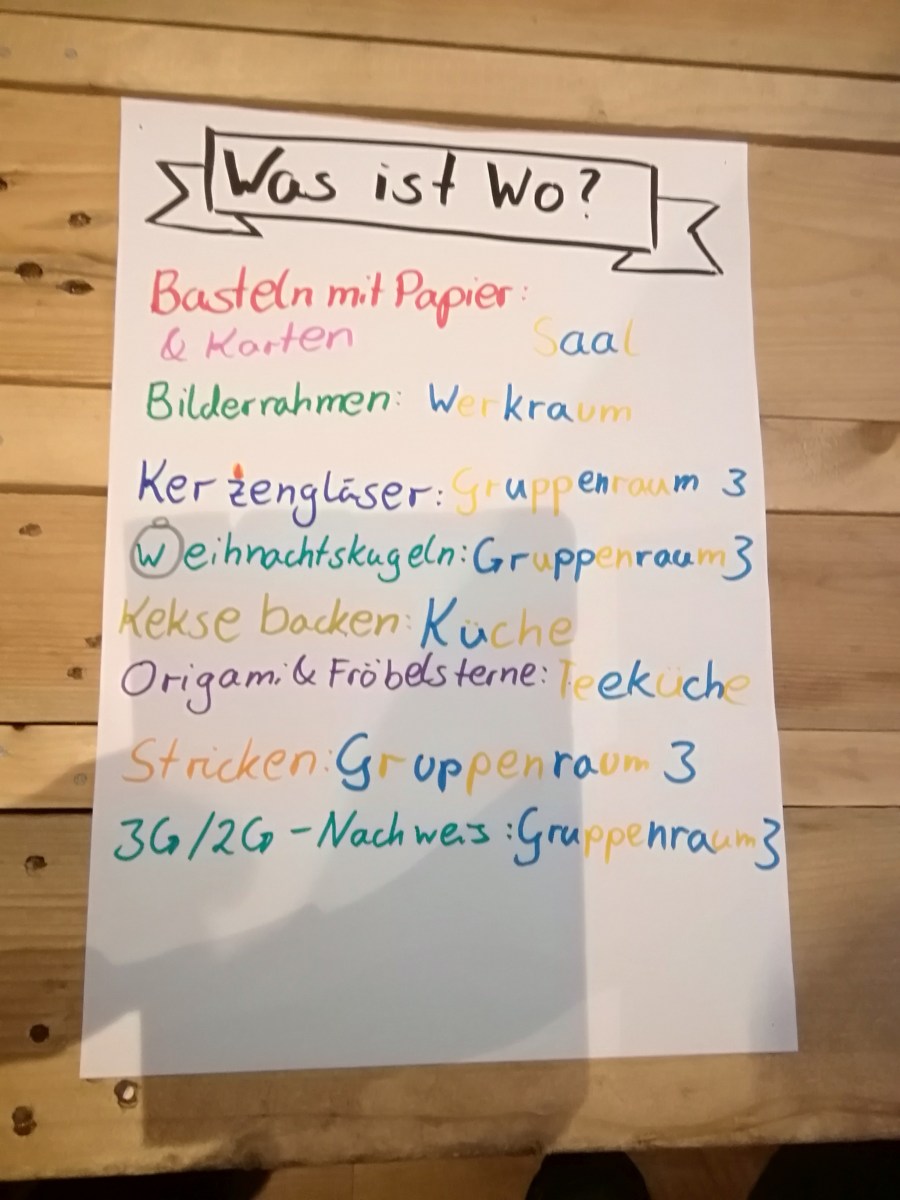 Was ist Wo?
Basteln mit Papier:
& Karten Saal
Bilderrahmen: Werkraum
Kerzengläser: Gruppenraum 3
Weihnachtskugeln: Gruppenraum 3
Kekse backen: Küche
Origami & Fröbelsterne: Teeküche
Stricken: Gruppenraum 3
3G/2G-Nachweis: Gruppenraum 3